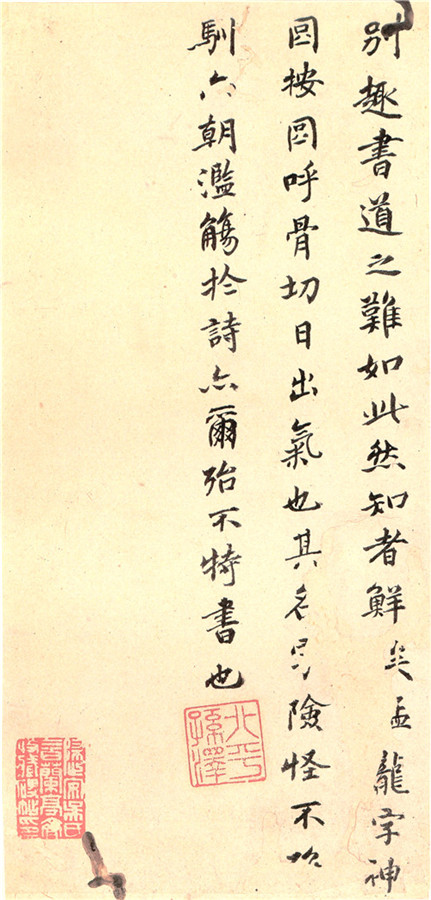 别趣書道之難如此然知者鮮矣孟龍字神
按呼骨切日出氣也其名險怪不
馴六朝濫觴於詩亦爾殆不特書也
北平
孫澤